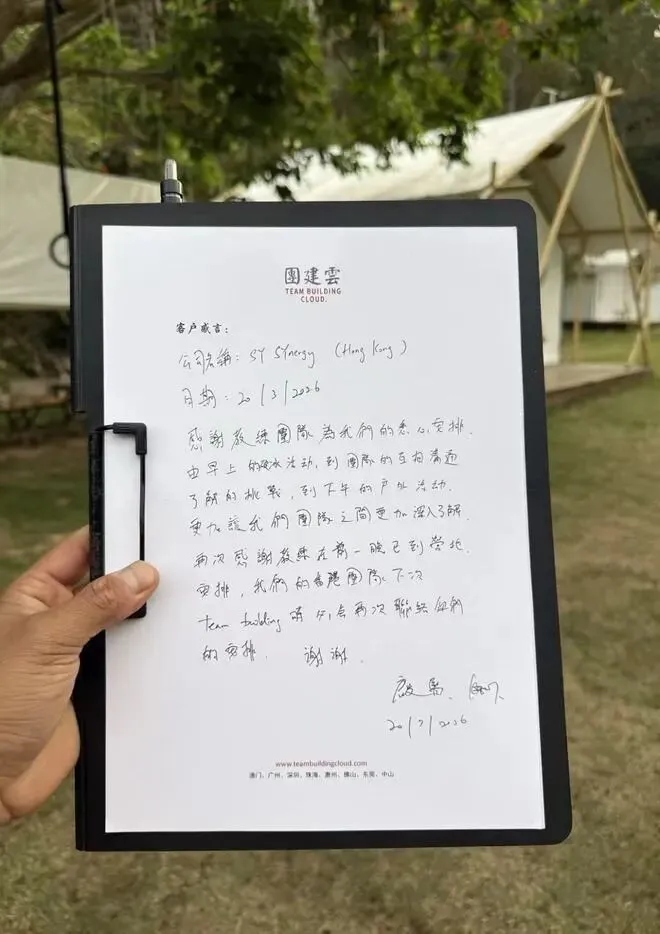 團建雲
TEAM BUILDING
CLOUD.
客户感言：
公司名稱：SY SYnergy (Hong Kong)
日期：20/3/2026
感謝教練團隊為我們的悉心安排.
由早上的破冰活动,到團隊的互相溝通
了解的挑戰,到下午的户外活动.
更加讓我們團隊之間更加深入了解.
再次感謝教練在前一晚已到營地
安排,我們的團隊下次
team building 會再次聯絡你們
的安排. 謝謝.
20/3/2026
www.teambuildingcloud.com
澳门、广州、深圳、珠海、惠州、佛山、东莞、中山